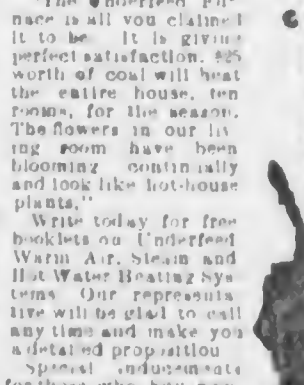 "The Underfeed Fur-
nace is all you claimed
it to be. It is giving
perfect satisfaction. $25
worth of coal will heat
the entire house, ten
rooms, for the season.
The flowers in our liv-
ing room have been
blooming continually
and look like hot-house
plants."
Write today for free
booklets on Underfeed
Warm Air, Steam and
Hot Water Heating Sys-
tems. Our representa-
tive will be glad to call
any time and make you
a detailed proposition
Special inducements
for those who buy